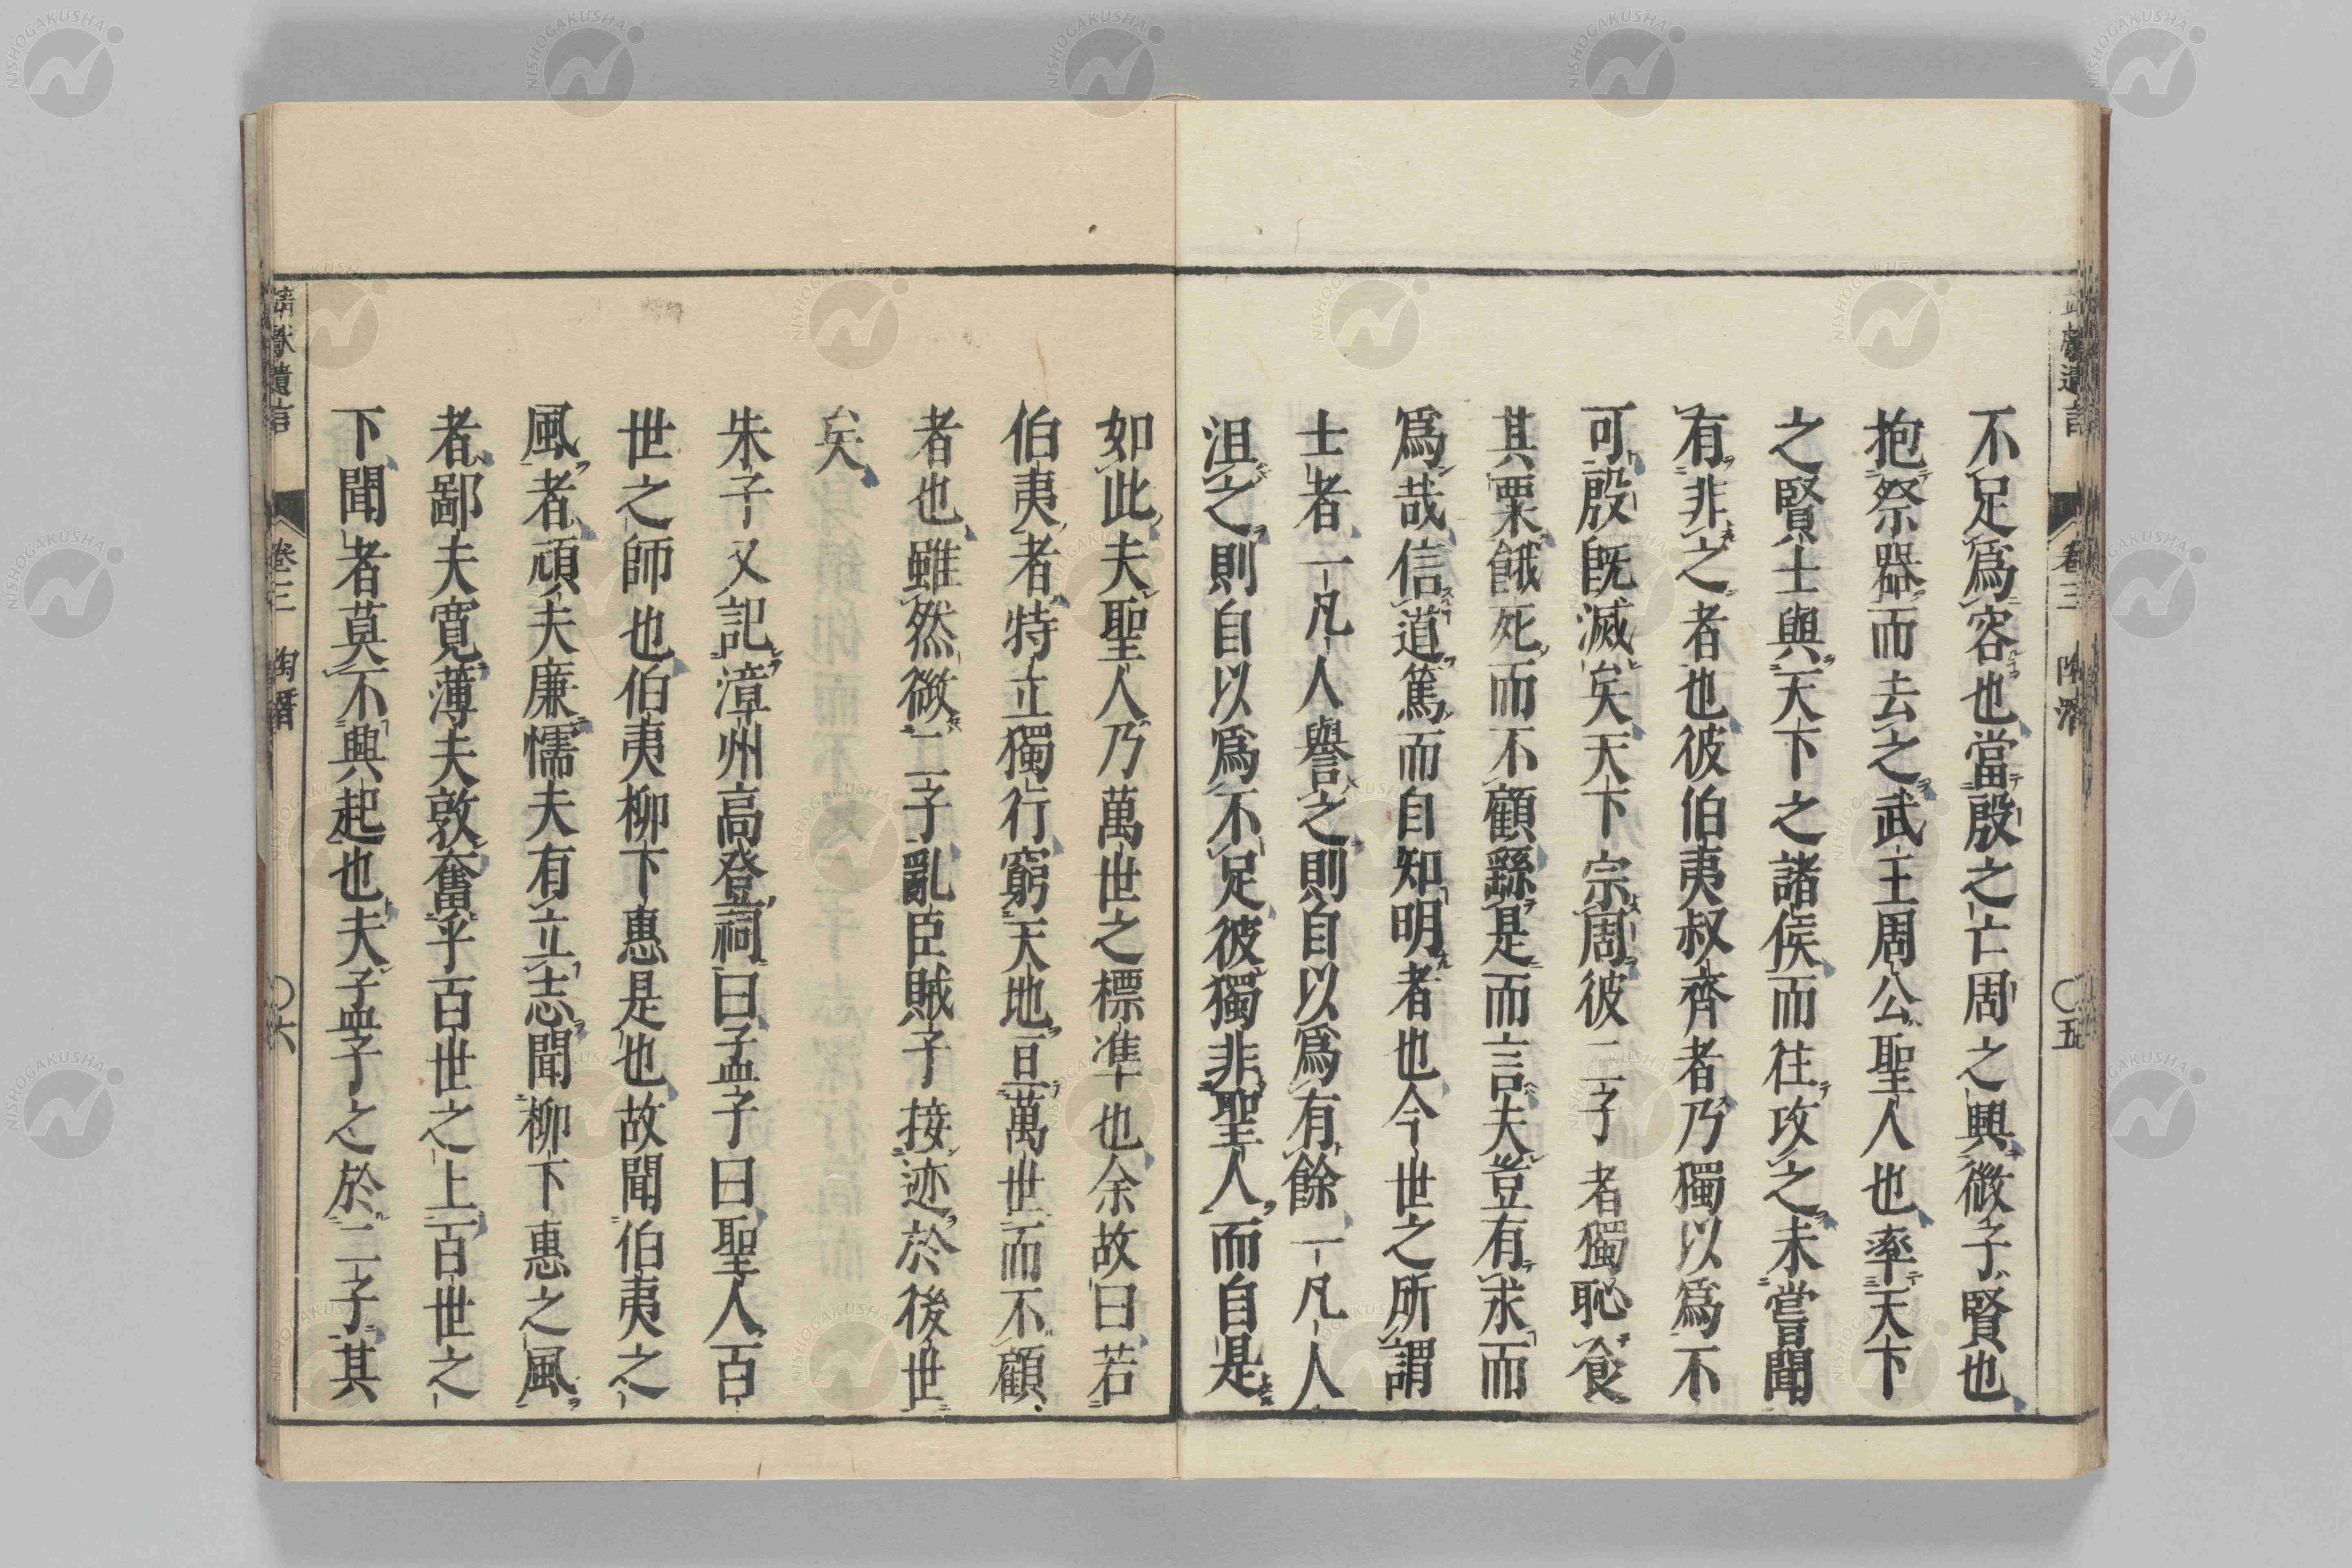 靖獻遺言 卷三 陶潛 〇五
不足爲容也當殷之亡周之興微子賢也
抱祭器而去之武王周公聖人也率天下
之賢士與天下之諸侯而往攻之未嘗聞
有非之者也彼伯夷叔齊者乃獨以爲不
可殷既滅矣天下宗周彼二子者獨恥食
其栗餓死而不顧繇是而言夫豈有求而
爲哉信道篤而自知明者也今世之所謂
士者一凡人譽之則自以爲有餘一凡人
沮之則自以爲不足彼獨非聖人而自是
如此夫聖人乃萬世之標準也余故曰若
伯夷者特立獨行窮天地亘萬世而不顧
者也雖然微二子亂臣賊子接迹於後世
矣
朱子又記漳州高登祠曰孟子曰聖人百
世之師也伯夷柳下惠是也故聞伯夷之
風者頑夫廉懦夫有立志聞柳下惠之風
者鄙夫寛薄夫敦奮乎百世之上百世之
下聞者莫不興起也夫孟子之於二子其
靖獻遺言 卷三 陶潛 〇六
NISHOGAKUSHA